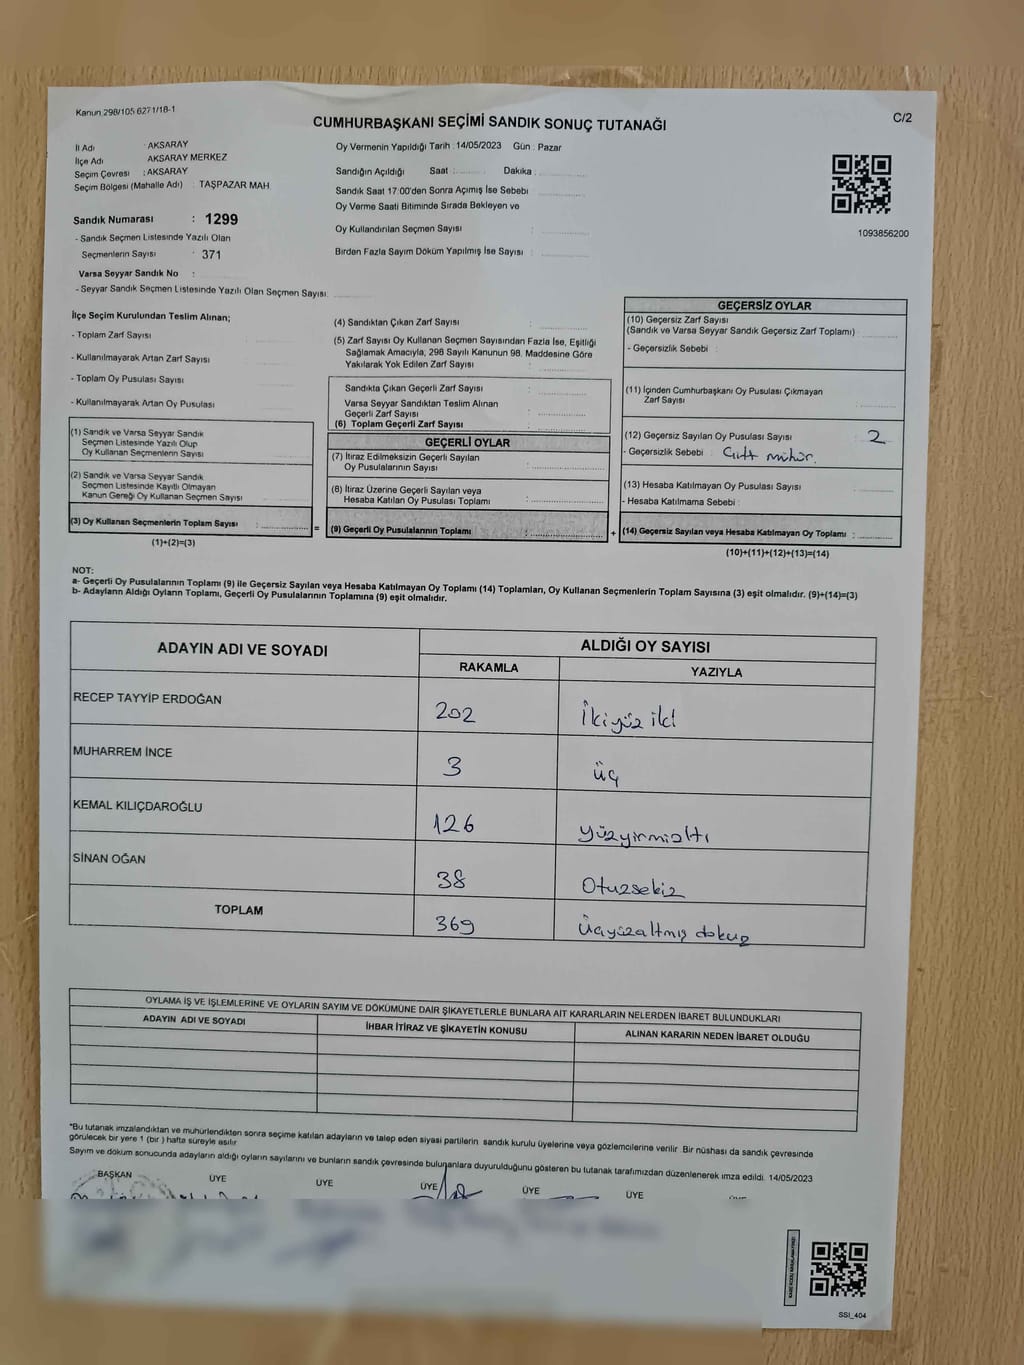 Kanun 298/105 6271/18-1
C/2
CUMHURBAŞKANI SEÇİMİ SANDIK SONUÇ TUTANAĞI
İl Adı : AKSARAY
İlçe Adı AKSARAY MERKEZ
Seçim Çevresi : AKSARAY
Seçim Bölgesi (Mahalle Adı) : TAŞPAZAR MAH.
Sandık Numarası : 1299
- Sandık Seçmen Listesinde Yazılı Olan
Seçmenlerin Sayısı : 371
Varsa Seyyar Sandık No :
- Seyyar Sandık Seçmen Listesinde Yazılı Olan Seçmen Sayısı:
Oy Vermenin Yapıldığı Tarih : 14/05/2023 Gün : Pazar
Sandığın Açıldığı Saat : Dakika :
Sandık Saat 17:00'den Sonra Açımış İse Sebebi
Oy Verme Saati Bitiminde Sırada Bekleyen ve
Oy Kullandırılan Seçmen Sayısı :
Birden Fazla Sayım Döküm Yapılmış İse Sayısı :
1093856200
İlçe Seçim Kurulundan Teslim Alınan;
- Toplam Zarf Sayısı
- Kullanılmayarak Artan Zarf Sayısı
- Toplam Oy Pusulası Sayısı
- Kullanılmayarak Artan Oy Pusulası
(1) Sandık ve Varsa Seyyar Sandık
Seçmen Listesinde Yazılı Olup
Oy Kullanan Seçmenlerin Sayısı
(2) Sandık ve Varsa Seyyar Sandık
Seçmen Listesinde Kayıtlı Olmayan
Kanun Gereği Oy Kullanan Seçmen Sayısı
(3) Oy Kullanan Seçmenlerin Toplam Sayısı : =
(1)+(2)=(3)
(4) Sandıktan Çıkan Zarf Sayısı :
(5) Zarf Sayısı Oy Kullanan Seçmen Sayısından Fazla İse, Eşitliği
Sağlamak Amacıyla, 298 Sayılı Kanunun 98. Maddesine Göre
Yakılarak Yok Edilen Zarf Sayısı :
Sandıkta Çıkan Geçerli Zarf Sayısı :
Varsa Seyyar Sandıktan Teslim Alınan
Geçerli Zarf Sayısı :
(6) Toplam Geçerli Zarf Sayısı :
GEÇERLİ OYLAR
(7) İtiraz Edilmeksizin Geçerli Sayılan
Oy Pusulalarının Sayısı :
(8) İtiraz Üzerine Geçerli Sayılan veya
Hesaba Katılan Oy Pusulası Toplamı :
(9) Geçerli Oy Pusulalarının Toplamı : +
GEÇERSİZ OYLAR
(10) Geçersiz Zarf Sayısı
(Sandık ve Varsa Seyyar Sandık Geçersiz Zarf Toplamı)
- Geçersizlik Sebebi :
(11) İçinden Cumhurbaşkanı Oy Pusulası Çıkmayan
Zarf Sayısı
(12) Geçersiz Sayılan Oy Pusulası Sayısı 2
- Geçersizlik Sebebi : Çift mühür.
(13) Hesaba Katılmayan Oy Pusulası Sayısı
- Hesaba Katılmama Sebebi :
(14) Geçersiz Sayılan veya Hesaba Katılmayan Oy Toplamı :
(10)+(11)+(12)+(13)=(14)
NOT:
a- Geçerli Oy Pusulalarının Toplamı (9) ile Geçersiz Sayılan veya Hesaba Katılmayan Oy Toplamı (14) Toplamları, Oy Kullanan Seçmenlerin Toplam Sayısına (3) eşit olmalıdır. (9)+(14)=(3)
b- Adayların Aldığı Oyların Toplamı, Geçerli Oy Pusulalarının Toplamına (9) eşit olmalıdır.
ADAYIN ADI VE SOYADI ALDIĞI OY SAYISI
RAKAMLA YAZIYLA
RECEP TAYYİP ERDOĞAN 202 İkiyüz iki
MUHARREM İNCE 3 üç
KEMAL KILIÇDAROĞLU 126 yüzyirmialtı
SİNAN OĞAN 38 Otuzsekiz
TOPLAM 369 Üçyüzaltmış dokuz
OYLAMA İŞ VE İŞLEMLERİNE VE OYLARIN SAYIM VE DÖKÜMÜNE DAİR ŞİKAYETLERLE BUNLARA AİT KARARLARIN NELERDEN İBARET BULUNDUKLARI
ADAYIN ADI VE SOYADI İHBAR İTİRAZ VE ŞİKAYETİN KONUSU ALINAN KARARIN NEDEN İBARET OLDUĞU
*Bu tutanak imzalandıktan ve mühürlendikten sonra seçime katılan adayların ve talep eden siyasi partilerin sandık kurulu üyelerine veya gözlemcilerine verilir. Bir nüshası da sandık çevresinde
görülecek bir yere 1 (bir ) hafta süreyle asılır.
Sayım ve döküm sonucunda adayların aldığı oyların sayılarını ve bunların sandık çevresinde bulunanlara duyurulduğunu gösteren bu tutanak tarafımızdan düzenlenerek imza edildi. 14/05/2023
BAŞKAN ÜYE ÜYE ÜYE ÜYE ÜYE
SSI_404